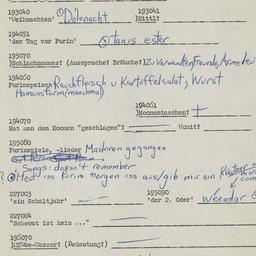 193040 193041
'Weihnachten' ⓪Dolenacht )Hittl?
194051
'der Tag vor Purin' ⓪ tanis ester
195070
)Schlachmones? (Aussprache? Bräuche?) Zu Verwandten, Freunde, Arme
194050
Purimspeisen Rauchfleisch u Kartoffelsalat, Wurst
Hamansturm (manchmal)
194061
)Homentaschen? +
194070
Hat man den Homen "geschlagen"? Womit?
195080
Purimspiele, -lieder Maskiren gegangen
Songs: doesn't remember
Heit iss Purim morgen iss aus/gib mir ein
227003 195090
'ein Schaltjahr' 'der 2. Oder' Weeadar
227004
"Scheunt ist kein ..."
196070
-Wasser? (Bedeutung?)